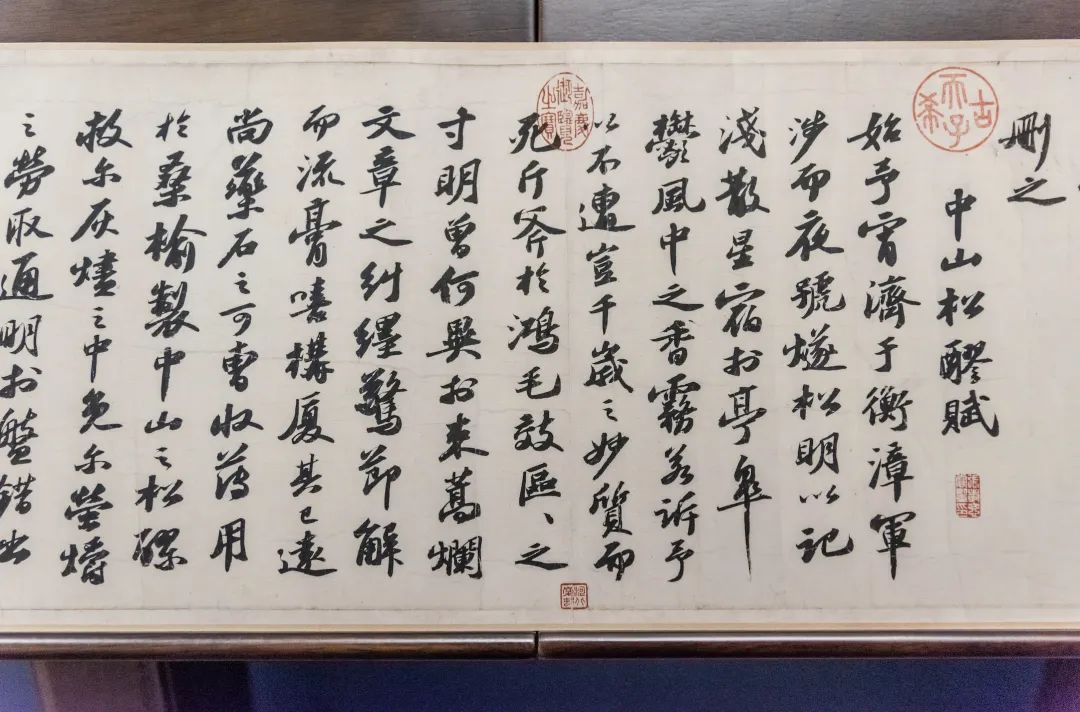 刪之
中山松醪賦
始予宵濟于衡漳軍
涉而夜號燧松明以記
淺散星宿於亭皐
鬱風中之香霧若訴予
以不遭豈千歲之妙質而
死斤斧於鴻毛效區、之
寸明曾何異於束蒿爛
文章之糾纏驚節解
而流膏嘻構廈其已遠
尚藥石之可曹收薄用
於桑榆製中山之松醪
救尔灰燼之中免尔螢爝
之勞取通明於盤錯出
古希天子
嘉慶御覽之寶